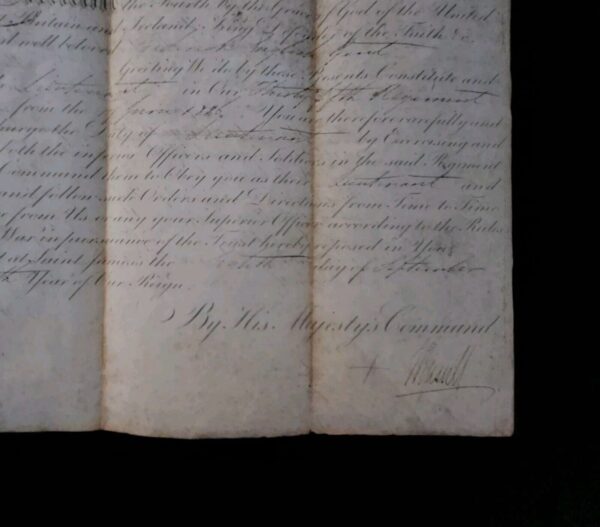 the Fourth by the Grace of God of the United
Britain and Ireland, King Defender of the Faith &c
well beloved Gent
Greeting We do by these Presents Constitute and
Lieutenant in Our Regiment
from the You are therefore carefully and
Duty of Lieutenant by Exercising and
both the inferior Officers and Soldiers in the said Regiment
Command them to Obey you as their Lieutenant and
and follow such Orders and Directions from Time to Time
from Us or any your Superior Officer according to the Rules
War in pursuance of the Trust hereby reposed in You
at Saint James's the day of September
Year of Our Reign
By His Majesty's Command